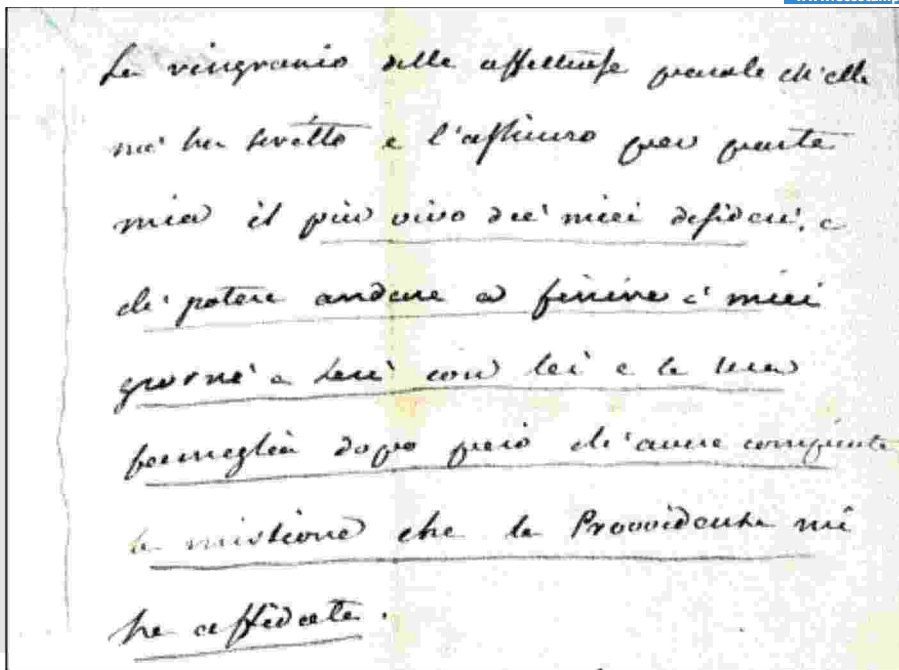 La ringrazio delle affettuose parole ch'ella
mi ha scritto e l'assicuro per parte
mia il più vivo dei miei desideri, e
di potere andare a finire i miei
giorni a con lei e la sua
famiglia dopo però di avere compiuta
la missione che la Provvidenza mi
ha affidata.